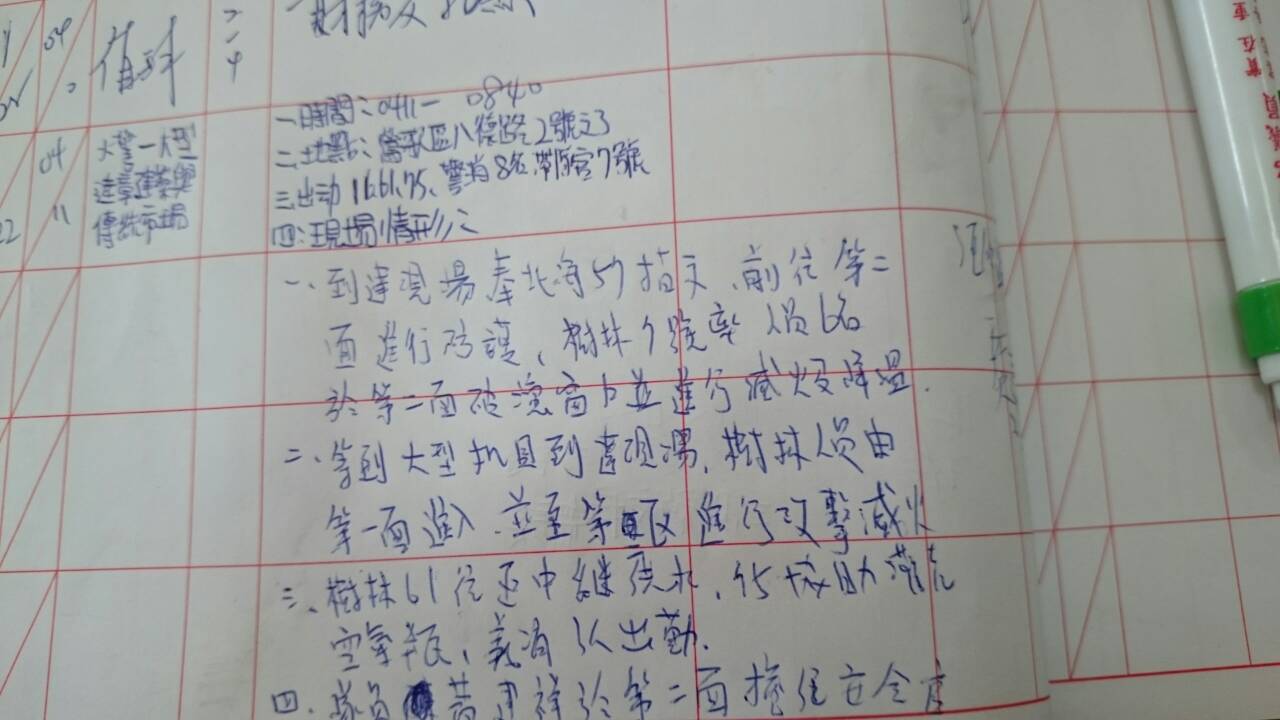 04
值班
04
11
22
火警一大型
違章建築與
傳統市場
一時間：0411－0840
二地點：鶯歌區八德路2號之3
三出动11.61.75、警消8名、帶隊官7號
四：現場情形：
一、到達現場奉北海57指示、前往第二
面進行防護、樹林7號率人員6名
於第二面破壞窗户並進行滅火及降溫.
二、等到大型机具到達現場、樹林人員由
第一面進入、並至第區進行攻擊滅火
三、樹林61位置中繼殘水、75協助灌充
空氣瓶、義消1人出勤.
四、隊員黃建祥於第二面擔任安全官